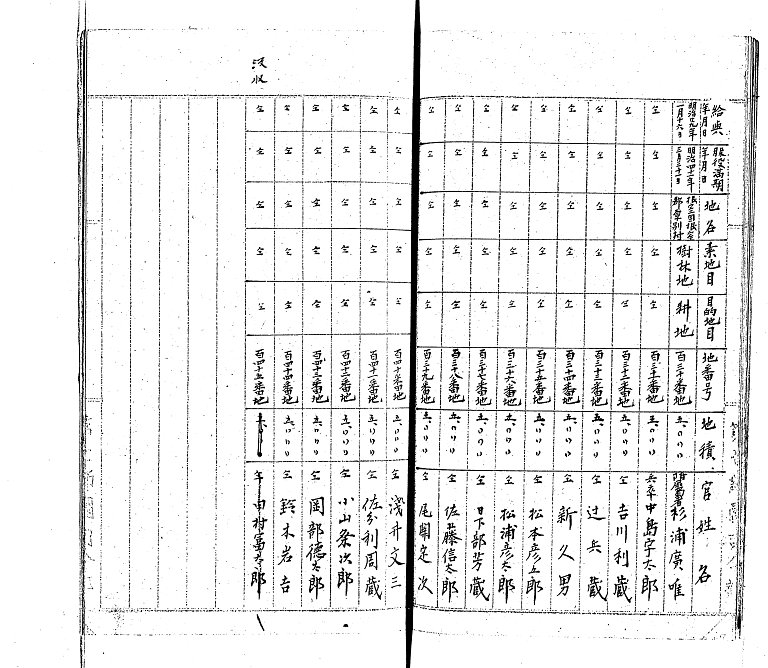 給與年月日 服役満期年月日 地名 素地目 目的地目 地番号 地積 官姓名
明治廿九年一月十六日 明治四十一年三月三十一日 樹林地 耕地 百三十番地 五〇〇〇 杉浦廣唯
仝 仝 仝 仝 仝 百三十一番地 五〇〇〇 兵卒 中島宇太郎
仝 仝 仝 仝 仝 百三十二番地 五〇〇〇 仝 吉川利蔵
仝 仝 仝 仝 仝 百三十三番地 五〇〇〇 仝 辻兵蔵
仝 仝 仝 仝 仝 百三十四番地 五〇〇〇 仝 新久男
仝 仝 仝 仝 仝 百三十五番地 五〇〇〇 仝 松本彦五郎
仝 仝 仝 仝 仝 百三十六番地 五〇〇〇 仝 松浦彦太郎
仝 仝 仝 仝 仝 百三十七番地 五〇〇〇 仝 日下部芳蔵
仝 仝 仝 仝 仝 百三十八番地 五〇〇〇 仝 佐藤信太郎
仝 仝 仝 仝 仝 百三十九番地 五〇〇〇 仝 尾関定次
仝 仝 仝 仝 仝 百四十番地 五〇〇〇 仝 浅井文三
仝 仝 仝 仝 仝 百四十一番地 五〇〇〇 仝 佐分利周蔵
仝 仝 仝 仝 仝 百四十二番地 五〇〇〇 仝 小山粂次郎
仝 仝 仝 仝 仝 百四十三番地 五〇〇〇 仝 岡部徳太郎
仝 仝 仝 仝 仝 百四十四番地 五〇〇〇 仝 鈴木岩吉
没収 仝 仝 仝 仝 仝 百四十五番地 五〇〇〇 仝